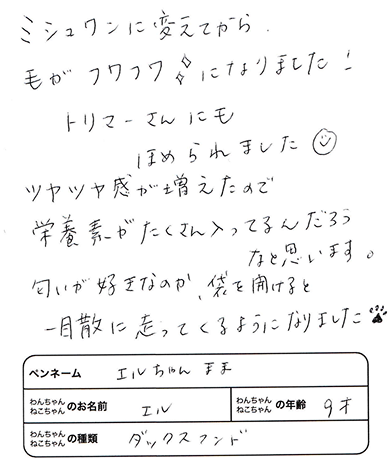 ミシュワンに変えてから、
毛がフワフワになりました!
トリマーさんにも
ほめられました
ツヤツヤ感が増えたので
栄養素がたくさん入ってるんだろう
なと思います。
匂いが好きなのか、袋を開けると
一目散に走ってくるようになりました
ペンネーム エルちゃんまま
わんちゃん ねこちゃん のお名前 エル わんちゃん ねこちゃん の年齢 9才
わんちゃん ねこちゃん の種類 ダックスフンド